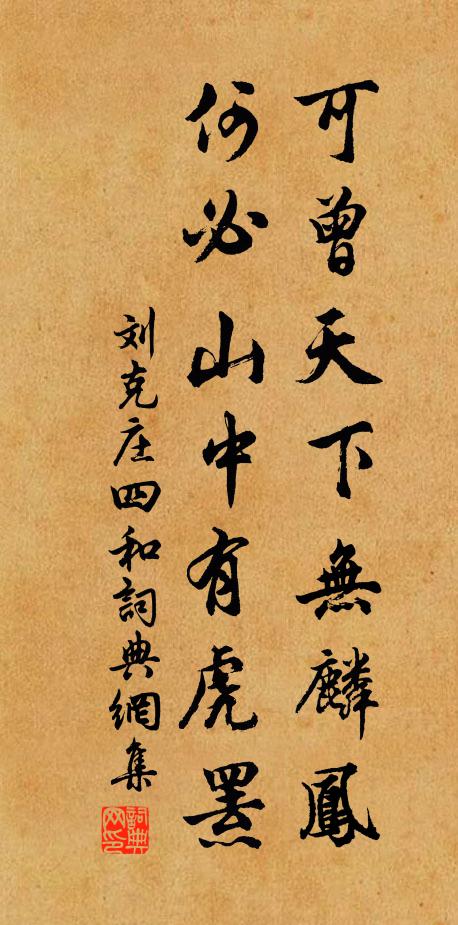 可曾天下無麟鳳
何必山中有虎罴
刘克庄四和詞典網集
詞典网印